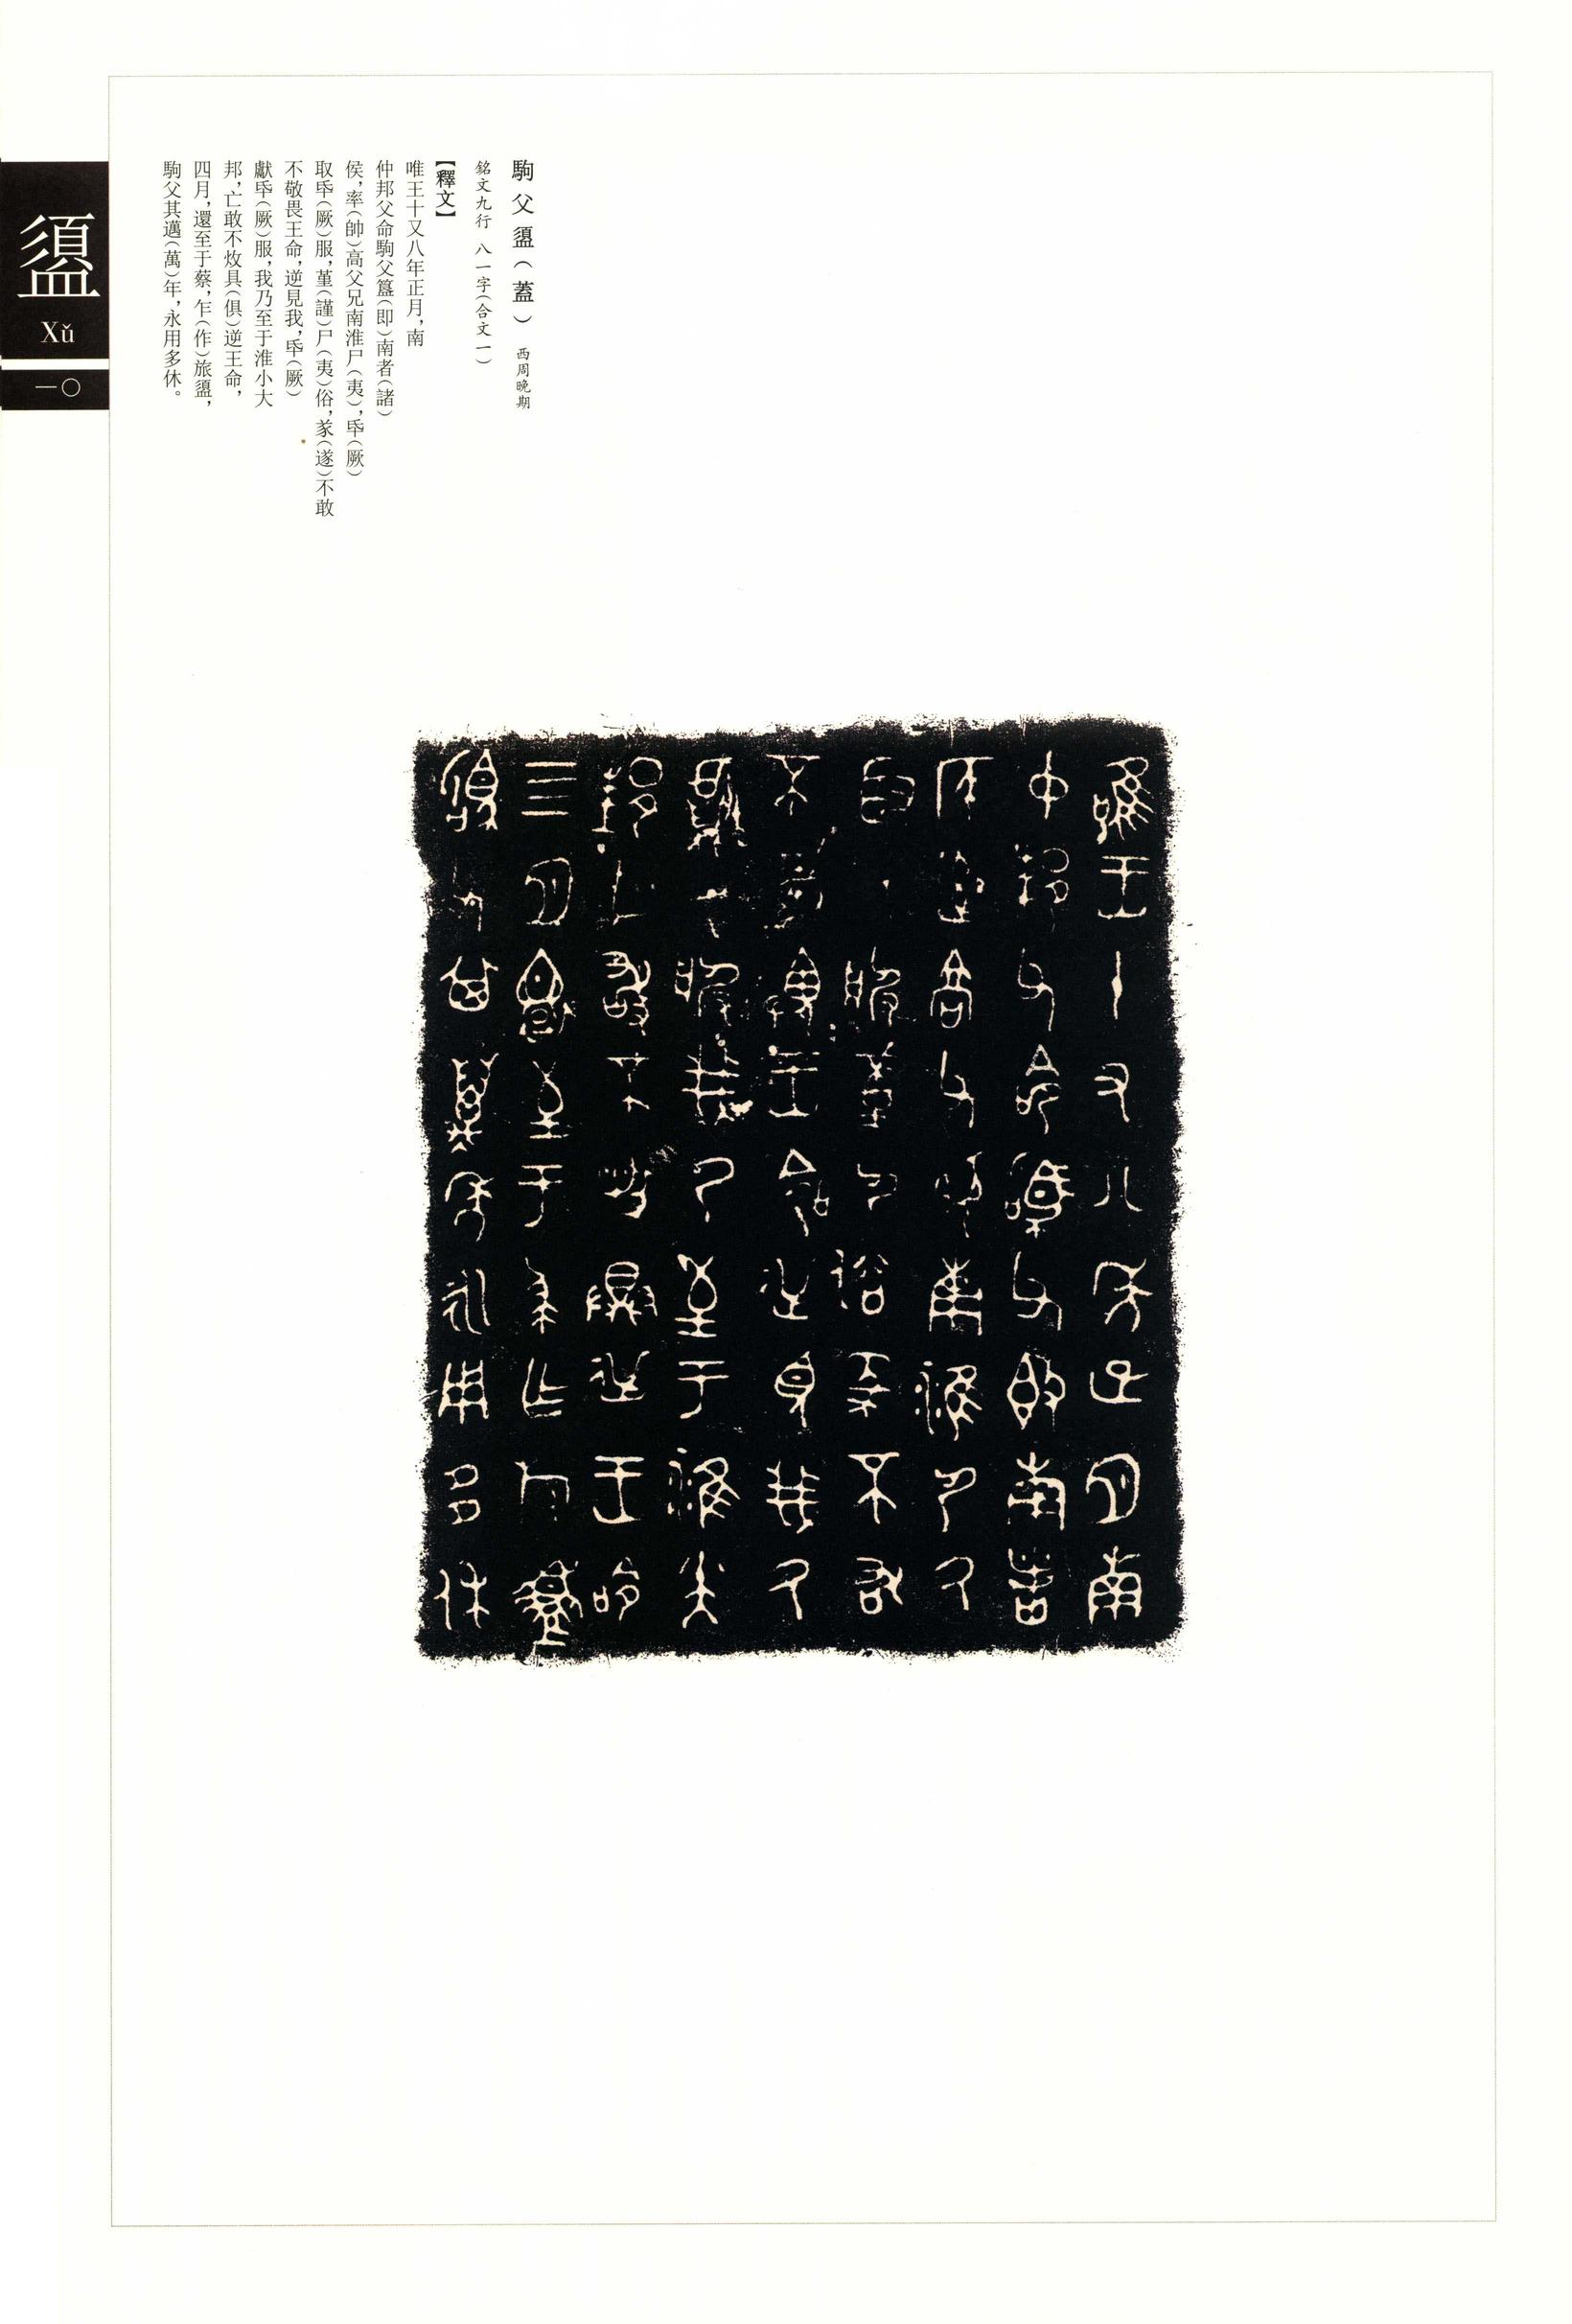 駒父盨(蓋) 西周晚期
銘文九行 八一字(合文一)
【釋文】
唯王十又八年正月,南
仲邦父命駒父簋(即)南者(諸)
侯,率(帥)高父兄南淮尸(夷),氒(厥)
取氒(厥)服,堇(謹)尸(夷)俗,㒸(遂)不敢
不敬畏王命,逆見我,氒(厥)
獻氒(厥)服,我乃至于淮小大
邦,亡敢不㪅具(俱)逆王命,
四月,還至于蔡,乍(作)旅盨,
駒父其邁(萬)年,永用多休。
盨
Xǔ
一〇